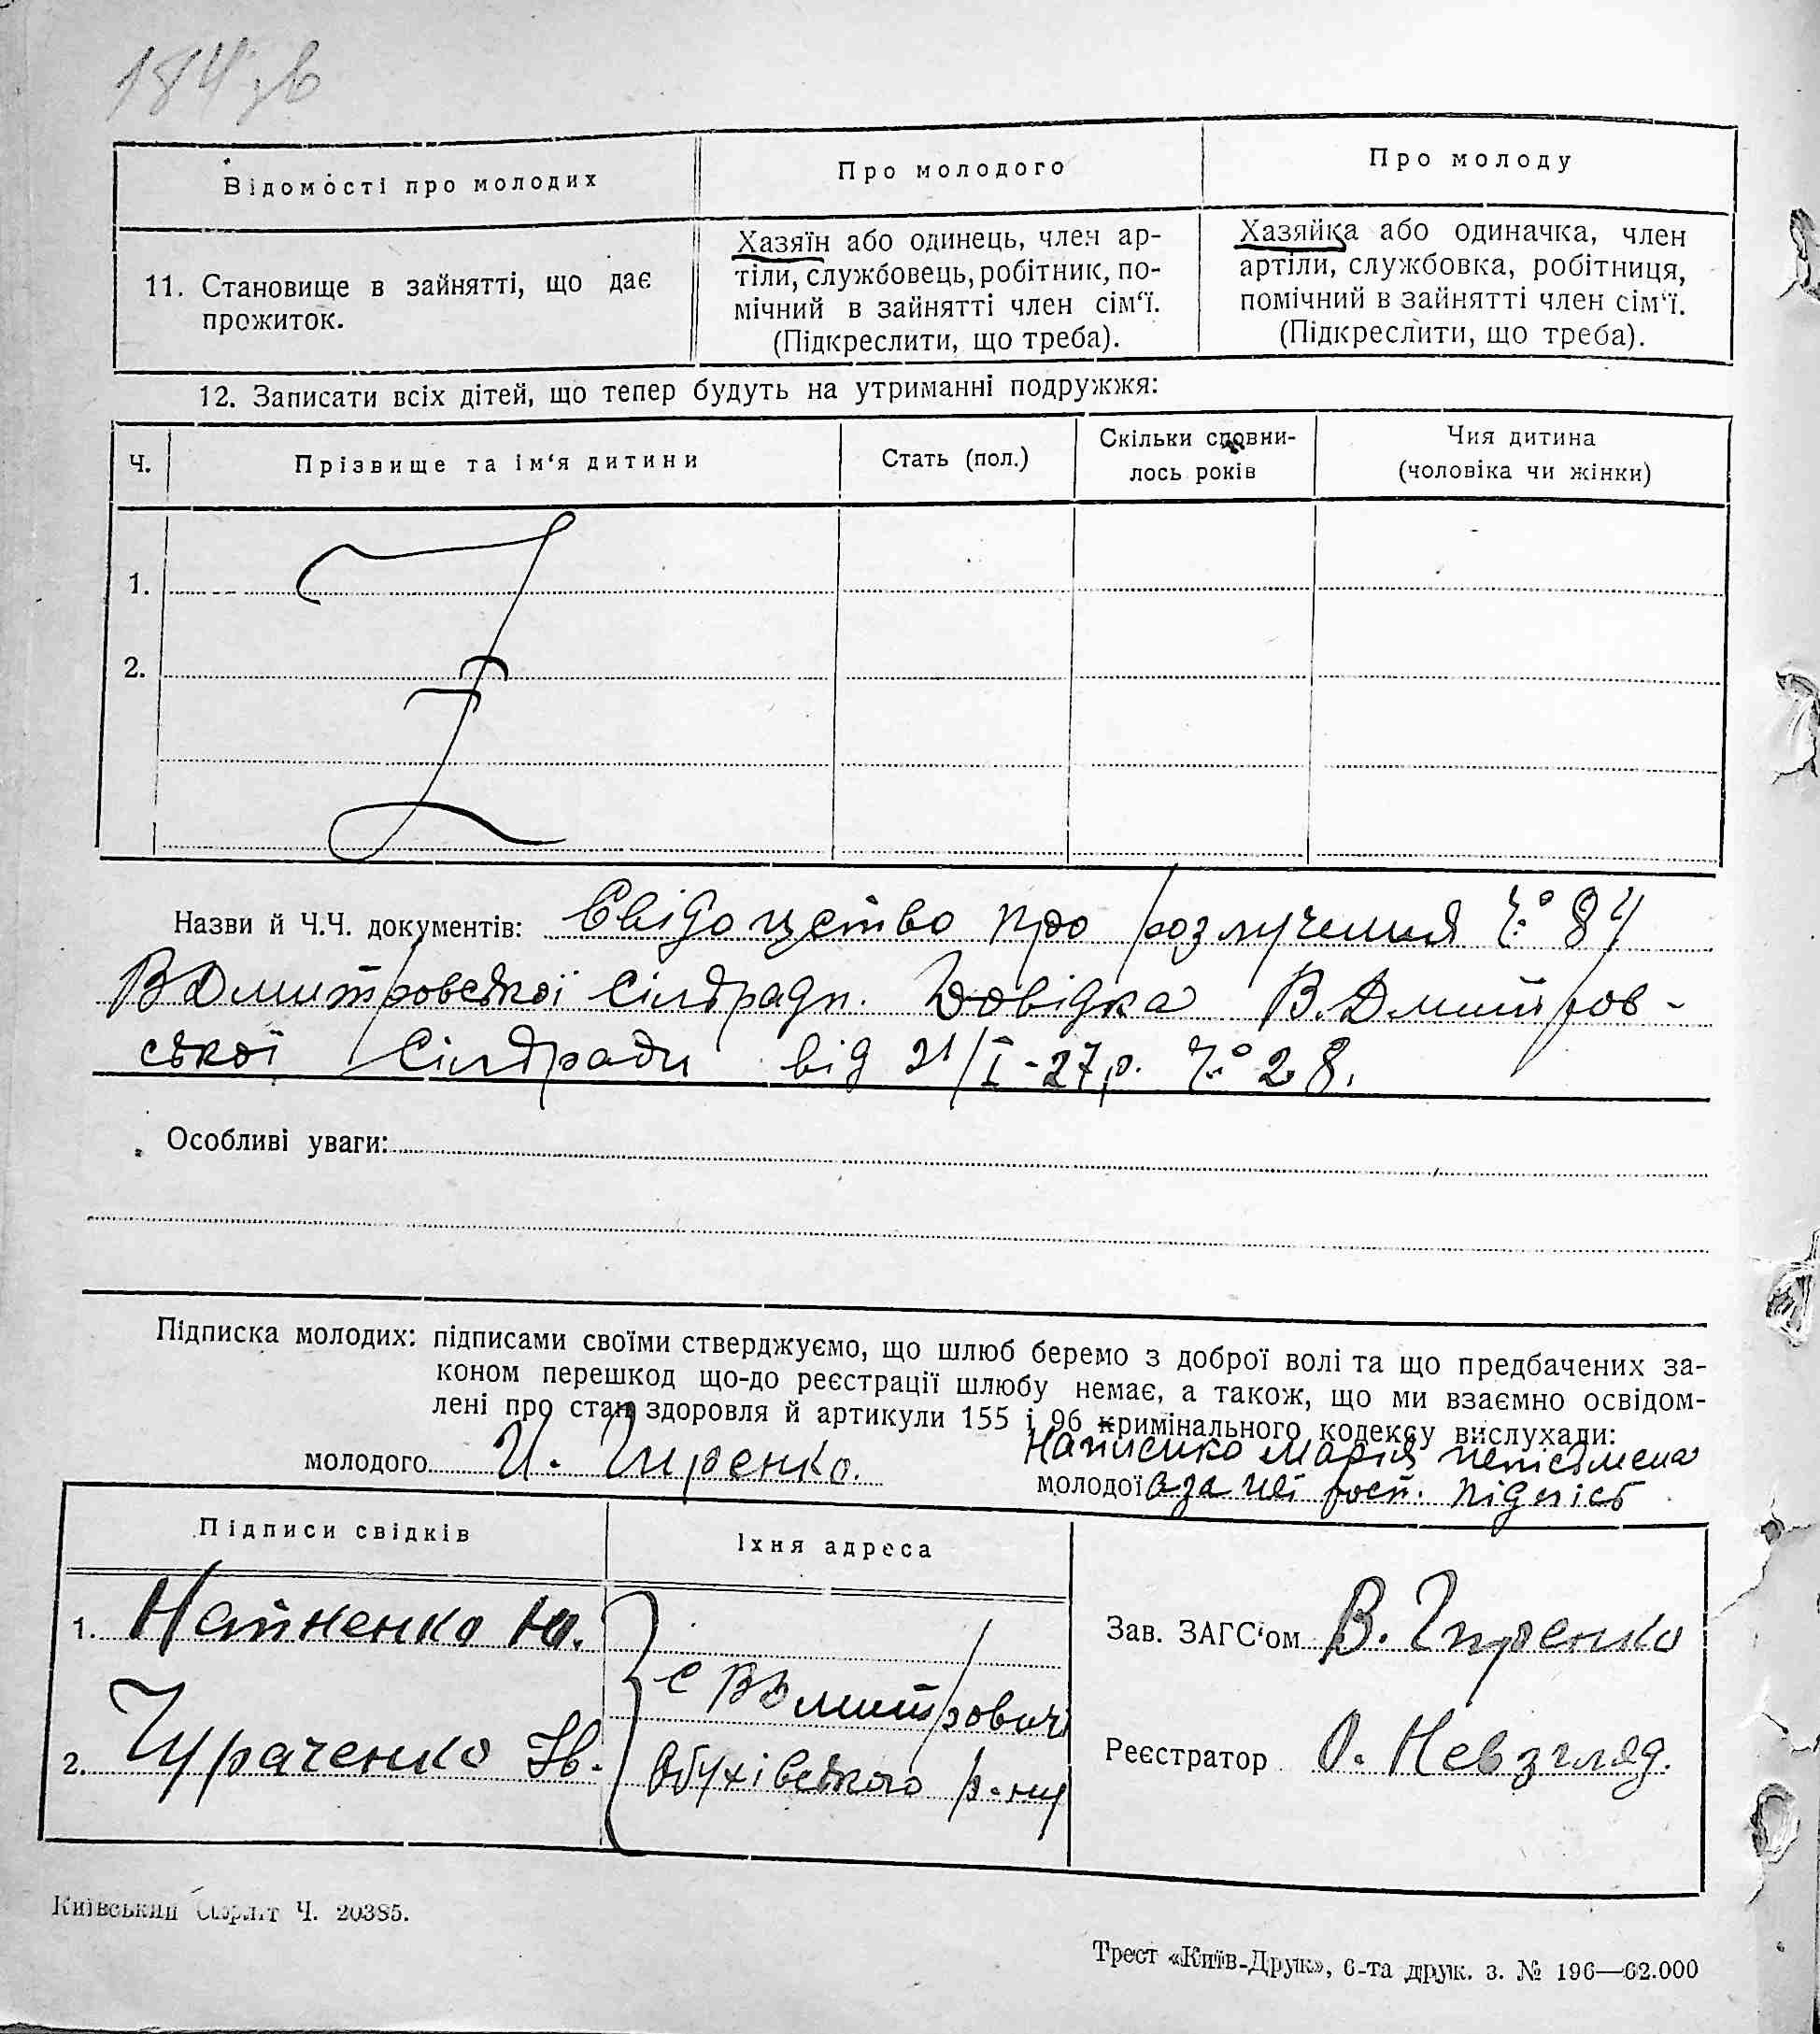 184 зв
Відомості про молодих
Про молодого
Про молоду
11. Становище в зайнятті, що дає
прожиток.
Хазяїн або одинець, член ар-
тіли, службовець, робітник, по-
мічний в зайнятті член сім'ї.
(Підкреслити, що треба).
Хазяйка або одиначка, член
артіли, службовка, робітниця,
помічний в зайнятті член сім'ї.
(Підкреслити, що треба).
12. Записати всіх дітей, що тепер будуть на утриманні подружжя:
Ч.
Прізвище та ім'я дитини
Стать (пол.)
Скільки сповни-
лось років
Чия дитина
(чоловіка чи жінки)
1.
2.
Назви й Ч.Ч. документів: Свідоцство про розлучення Ч.° 84
В Дмитровської Сільради. Довідка В. Дмитров-
ської Сільради від 21/I-27 р. Ч.° 28.
Особливі уваги:
Підписка молодих: підписами своїми стверджуємо, що шлюб беремо з доброї волі та що предбачених за-
коном перешкод що-до реєстрації шлюбу немає, а також, що ми взаємно освідом-
лені про стан здоровля й артикули 155 і 96 кримінального кодексу вислухали:
молодого И. Гиренко.
Марія неписьмена
молодої а за неї росп. підпісь
Підписи свідків
Їхня адреса
1. Ю.
2. Ів.
с ВДмитровичі
Обухівського р-ну
Зав. ЗАГС'ом В. Гиренко
Реєстратор О. Невзгляд.
Київський Ч. 20385.
Трест «Київ-Друк», 6-та друк. з. № 196—62.000